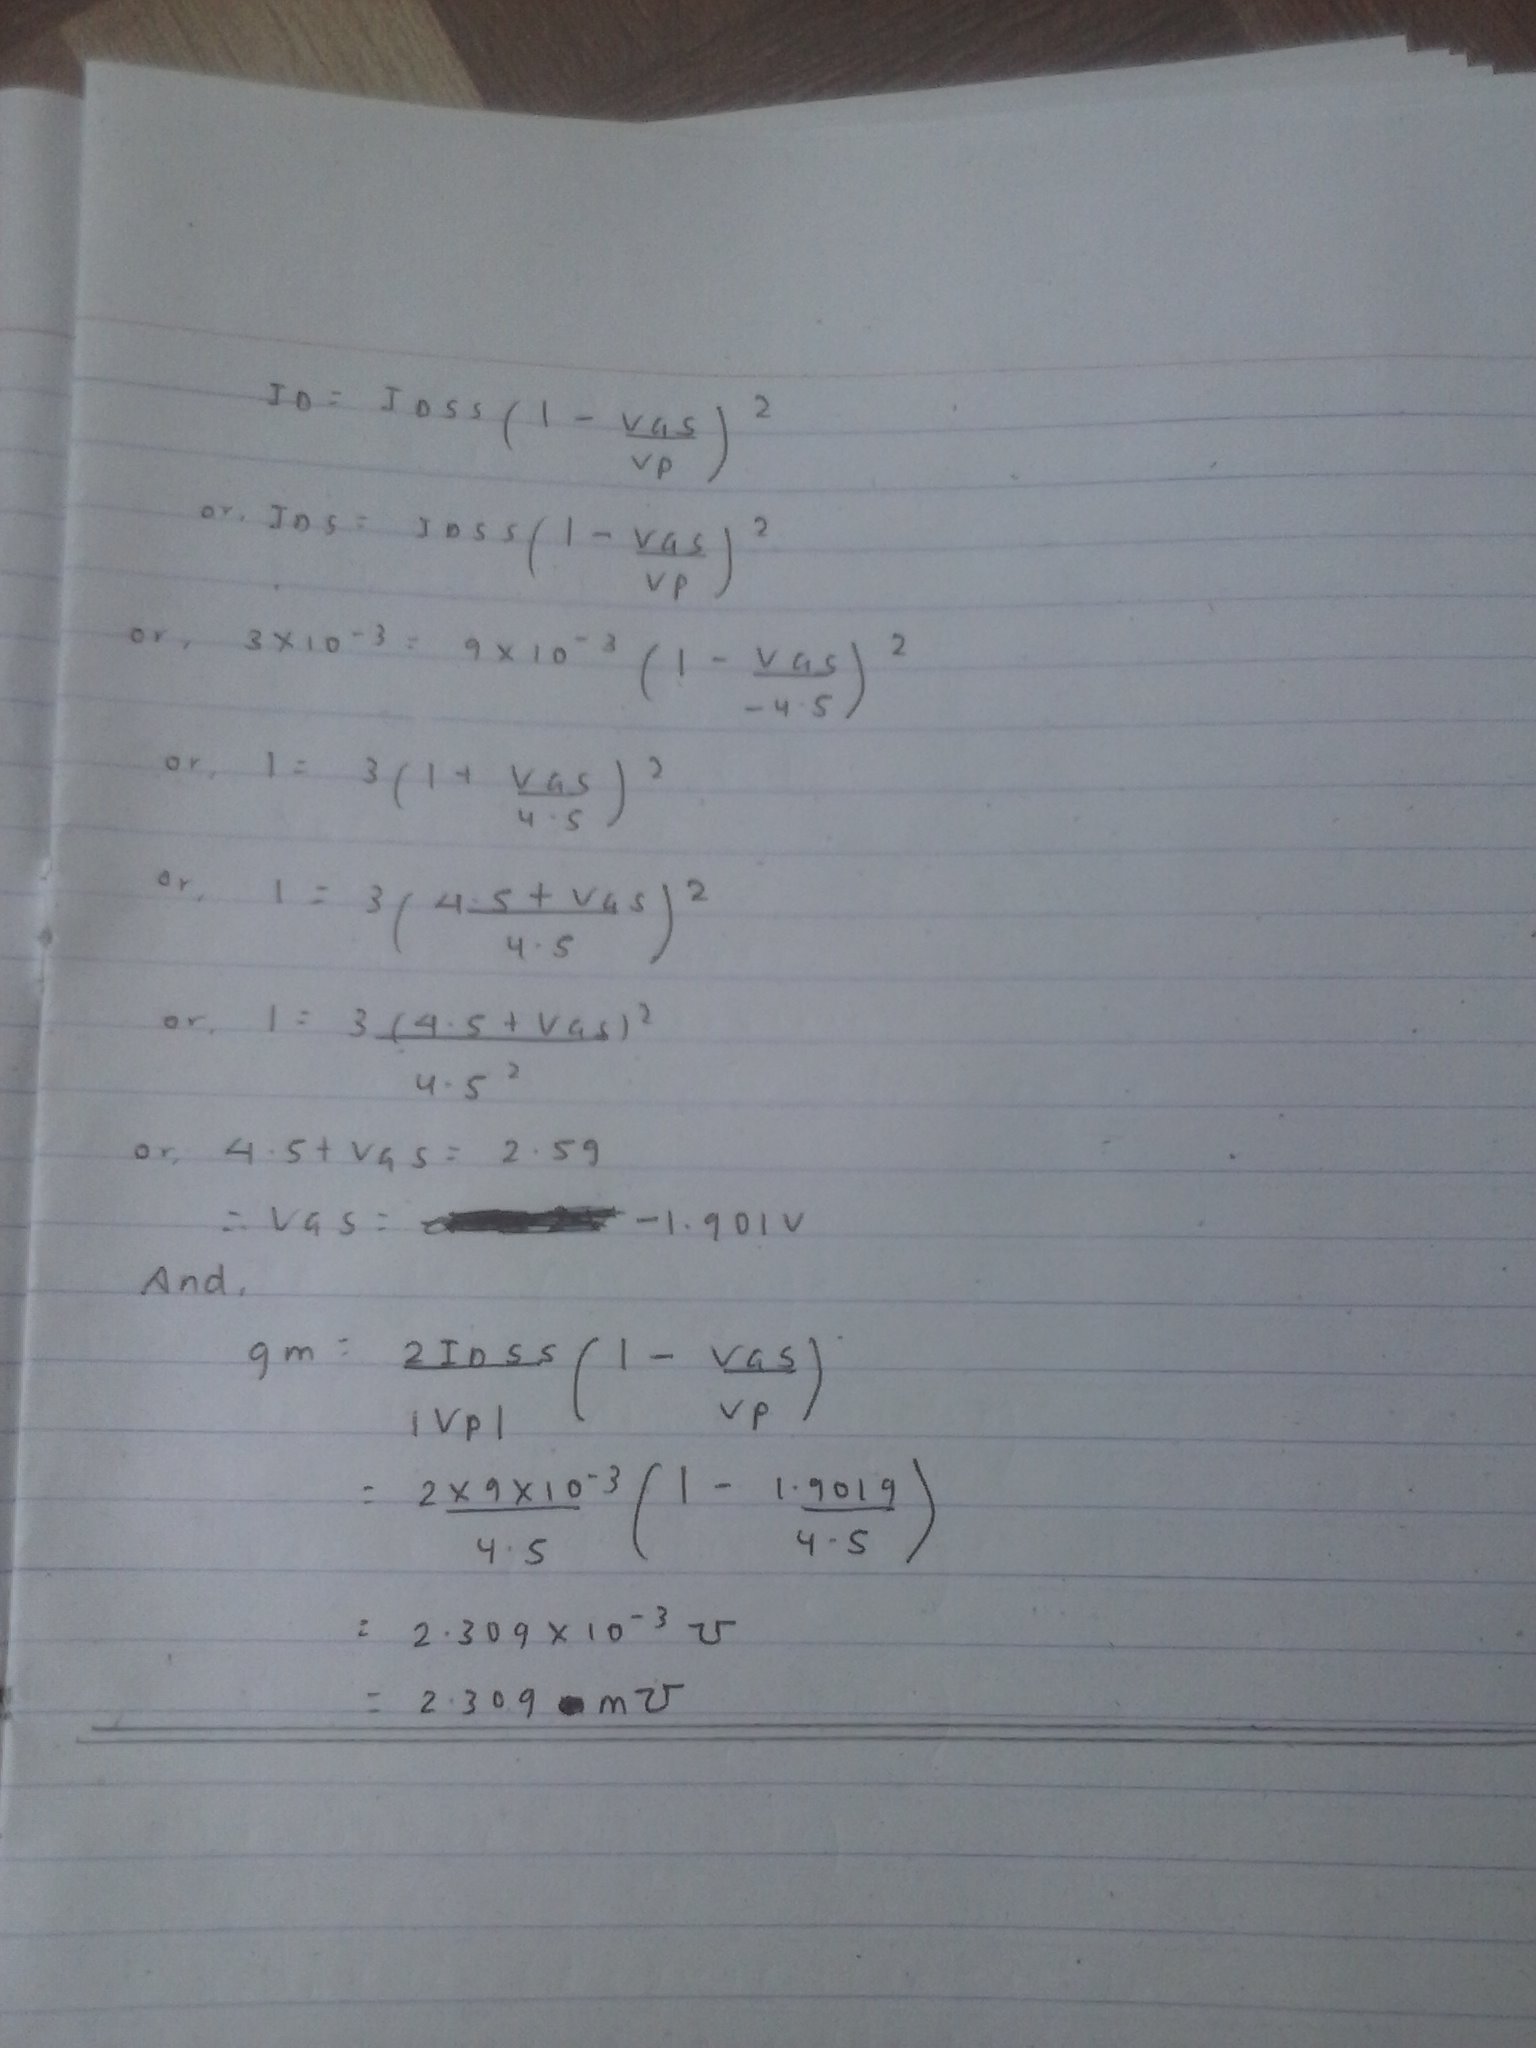 ID = IDSS (1 - VGS/VP)²
or, IDS = IDSS (1 - VGS/VP)²
or, 3×10⁻³ = 9×10⁻³ (1 - VGS/-4.5)²
or, 1 = 3(1+ VGS/4.5)²
or, 1 = 3(4.5+VGS/4.5)²
or, 1 = 3(4.5+VGS)²/4.5²
or, 4.5+VGS = 2.59
= VGS = -1.901V
And,
gm = 2IDSS/|VP| (1 - VGS/VP)
= 2×9×10⁻³/4.5 (1 - 1.9019/4.5)
= 2.309×10⁻³ ℧
= 2.309 m℧